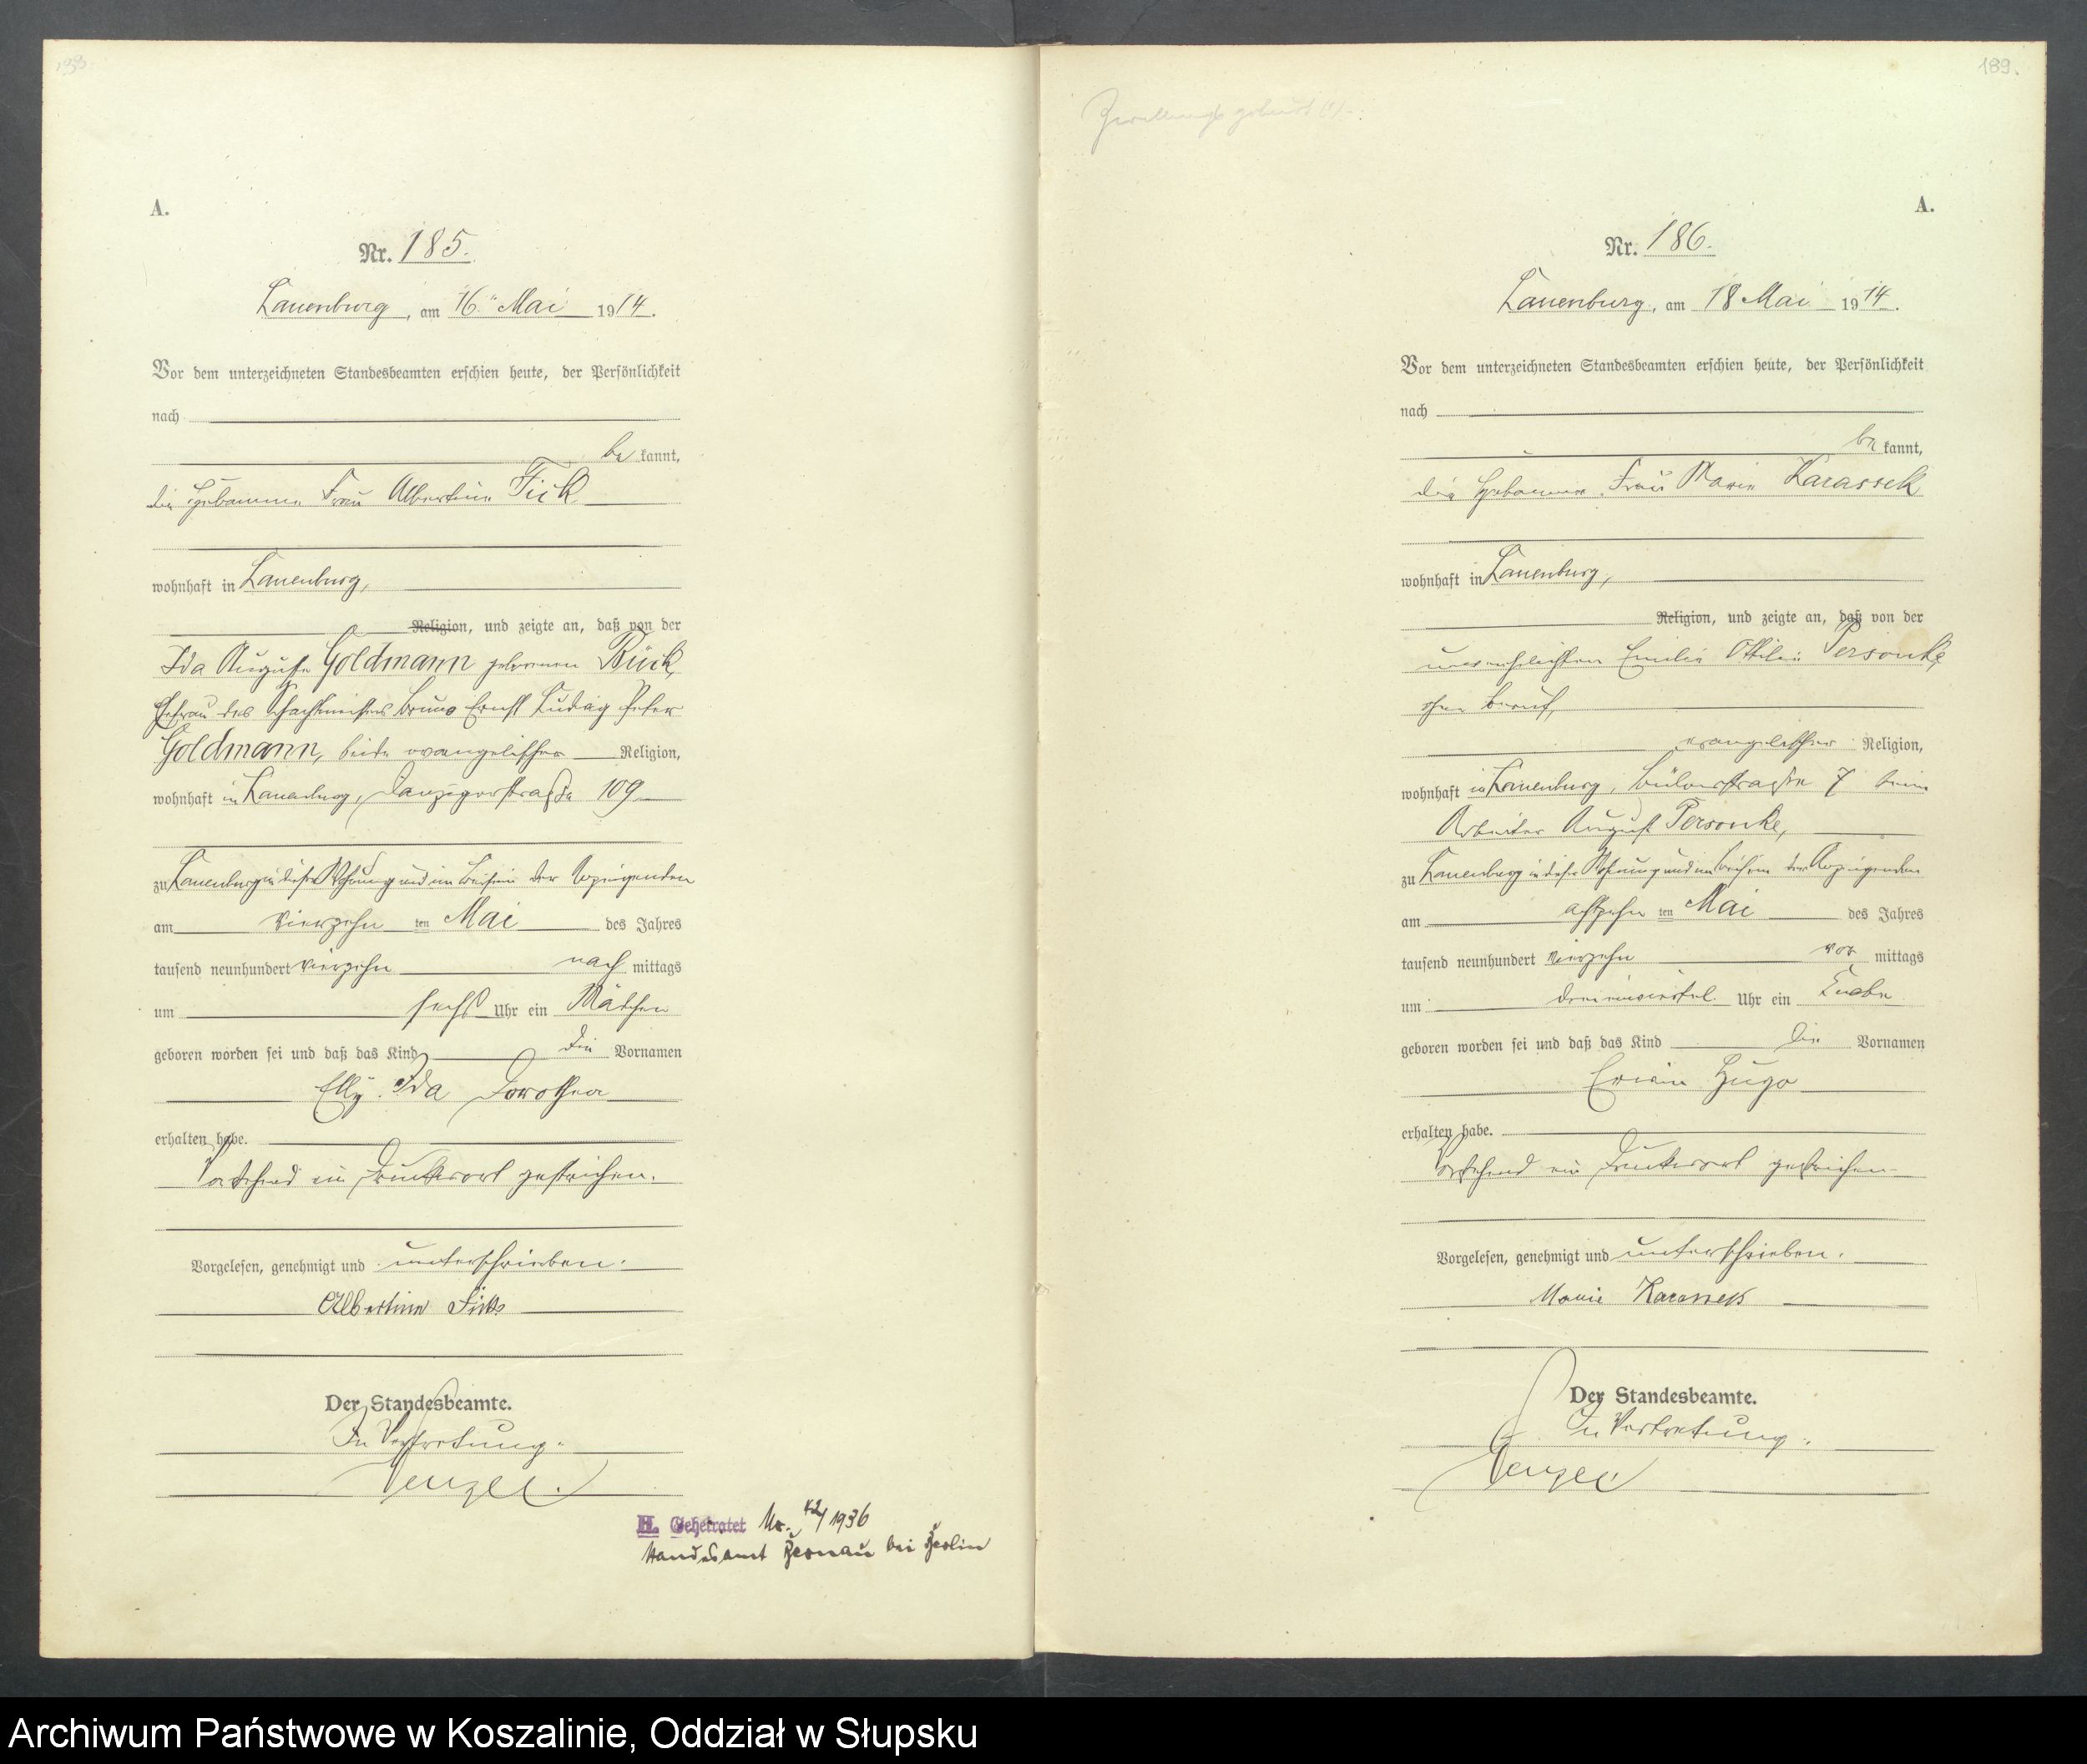 189.
Zwillingsgeburt (1)
A.
Nr. 185.
Lauenburg, am 16ten Mai 1914.
Vor dem unterzeichneten Standesbeamten erschien heute, der Persönlichkeit
nach
be kannt,
die Hebamme Frau Albertine Fick
wohnhaft in Lauenburg,
Religion, und zeigte an, daß von der
Ida Auguste Goldmann geborenen Rück,
Ehefrau des Schachtmeisters Bruno Ernst Ludwig Peter
Goldmann, beide evangelischer Religion,
wohnhaft in Lauenburg, Danzigerstraße 109
zu Lauenburg in dieser Wohnung und im Beisein der Anzeigenden
am vierzehn ten Mai des Jahres
tausend neunhundert vierzehn nach mittags
um sechs Uhr ein Mädchen
geboren worden sei und daß das Kind die Vornamen
Elly Ida Dorothea
erhalten habe.
Vorstehend ein Druckwort gestrichen.
Vorgelesen, genehmigt und unterschrieben.
Albertine Fick
Der Standesbeamte.
In Vertretung.
Wenzel.
H. Geheiratet Nr. 42/1936
Standesamt Bernau bei Berlin
A.
Nr. 186.
Lauenburg, am 18 Mai 1914.
Vor dem unterzeichneten Standesbeamten erschien heute, der Persönlichkeit
nach
be kannt,
die Hebamme Frau Marie Karassek
wohnhaft in Lauenburg,
Religion, und zeigte an, daß von der
unverehelichten Emilie Ottilie Personke,
ohne Beruf,
evangelischer Religion,
wohnhaft in Lauenburg, Bülowstraße 7 beim
Arbeiter August Personke,
zu Lauenburg in dieser Wohnung und im Beisein der Anzeigenden
am achtzehn ten Mai des Jahres
tausend neunhundert vierzehn vor mittags
um dreieinviertel Uhr ein Knabe
geboren worden sei und daß das Kind die Vornamen
Erwin Hugo
erhalten habe.
Vorstehend ein Druckwort gestrichen.
Vorgelesen, genehmigt und unterschrieben.
Marie Karassek
Der Standesbeamte.
In Vertretung.
Wenzel
Archiwum Państwowe w Koszalinie, Oddział w Słupsku